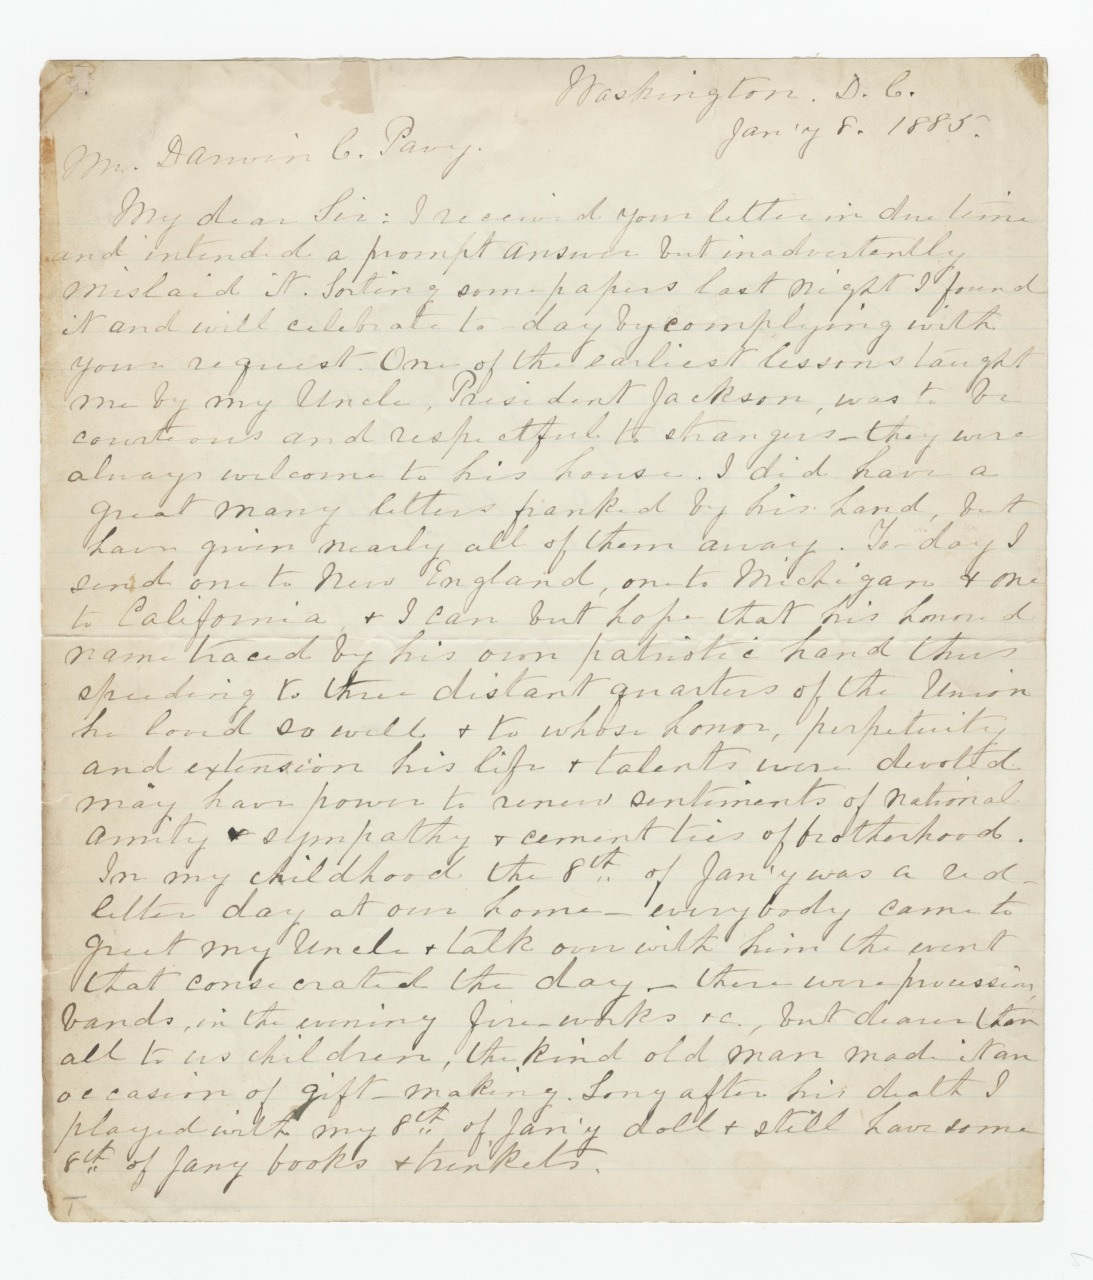 Washington. D. C.
Jan'y 8. 1885.
Mr. Darwin C. Pavy.
My dear Sir: I received your letter in due time
and intended a prompt answer but inadvertently
mislaid it. Sorting some papers last night I found
it and will celebrate to-day by complying with
your request. One of the earliest lessons taught
me by my Uncle, President Jackson, was to be
courteous and respectful to strangers - they were
always welcome to his house. I did have a
great many letters franked by his hand, but
have given nearly all of them away. To-day I
send one to New England, one to Michigan & one
to California, & I can but hope that his honored
name traced by his own patriotic hand thus
speeding to three distant quarters of the Union
he loved so well & to whose honor, perpetuity
and extension his life & talents were devoted
may have power to renew sentiments of national
amity & sympathy & cement ties of brotherhood.
In my childhood the 8th of Jan'y was a red-
letter day at our home - everybody came to
greet my Uncle & talk over with him the event
that consecrated the day - there were procession,
bands, in the evening fire-works &c., but dearer than
all to us children, the kind old man made it an
occasion of gift-making. Long after his death I
played with my 8th of Jan'y doll & still have some
8th of Jany books & trinkets.